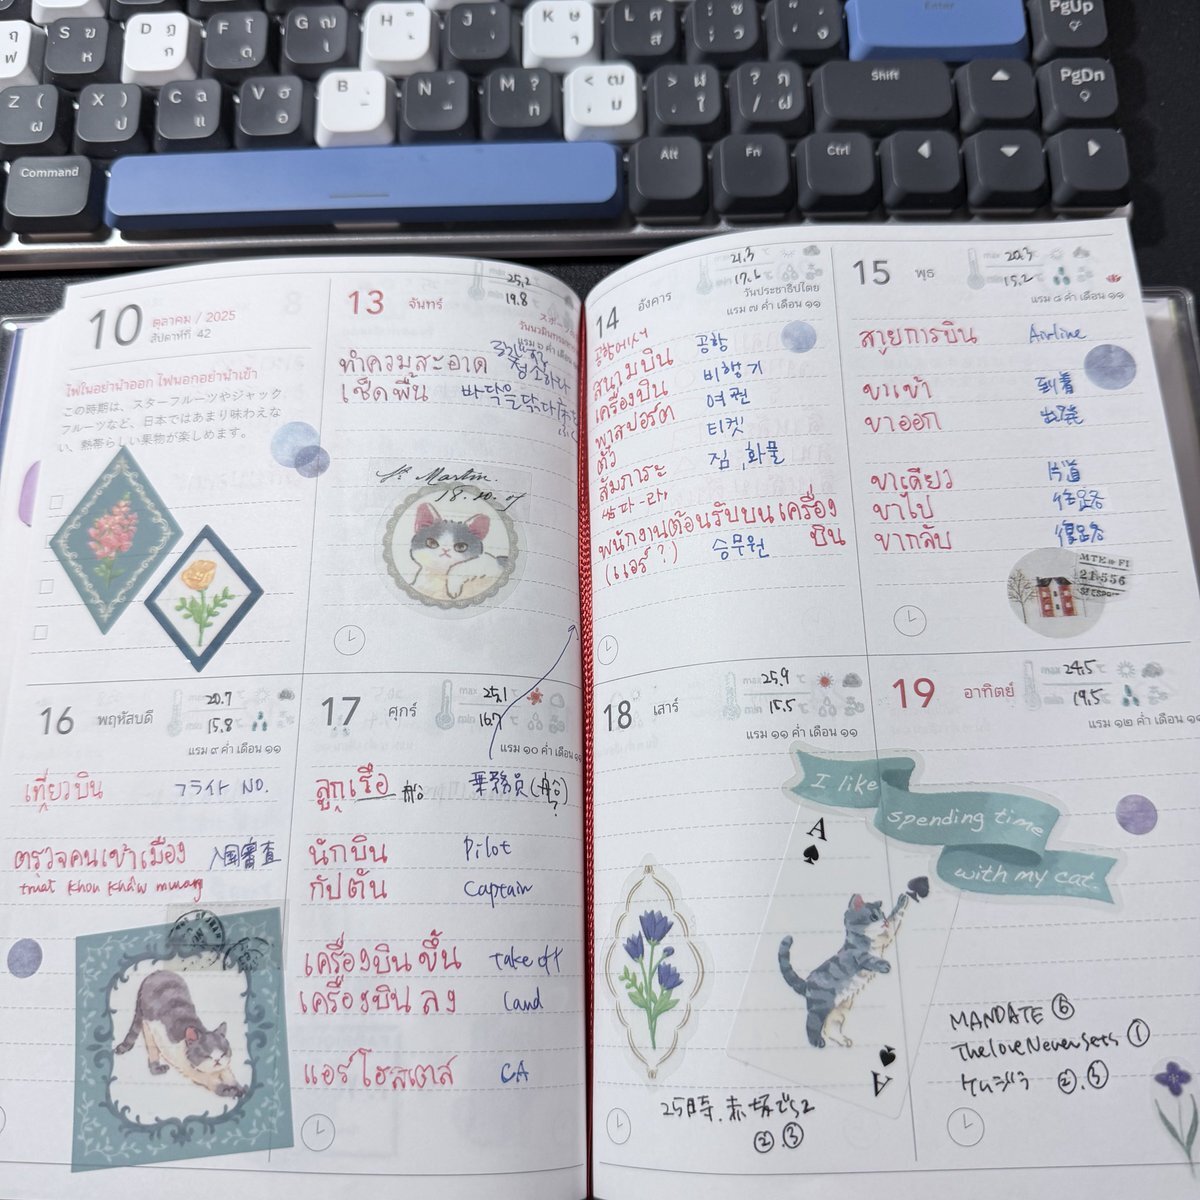 S ฆ ห
D ฏ ก
F โ ด
G ฌ เ
H ็ ้
J ๋ ่
K ษ า
L ศ ส
Enter
PgUp
Z ( ผ
X ) ป
C ฉ แ
V ฮ อ
B ฺ ิ
N ์ ื
M ? ท
< ฒ , ม
> ฬ . ใ
? ฦ / ฝ
Shift
PgDn
Command
Alt
Fn
Ctrl
10
ตุลาคม / 2025
สัปดาห์ที่ 42
ไฟในอย่านำออก ไฟนอกอย่านำเข้า
この時期は、スターフルーツやジャック
フルーツなど、日本ではあまり味わえな
い、熱帯らしい果物が楽しめます。
13 จันทร์
max 25.2
min 19.8
ทำความสะอาด 청소하다
เช็ดพื้น 바닥을 닦다
St Martin.
18.10.07
14 อังคาร
max 21.3 ℃
min 17.6 ℃
วันประชาธิปไตย
แรม ๗ ค่ำ เดือน ๑๑
공항에서
สนามบิน 공항
เครื่องบิน 비행기
พาสปอร์ต 여권
ตั๋ว 티켓
สัมภาระ 짐, 화물
พนักงานต้อนรับบนเครื่อง
บิน
(แอร์?) 승무원
15 พุธ
max 20.3
min 15.2
แรม ๘ ค่ำ เดือน ๑๑
สายการบิน Airline
ขาเข้า 到着
ขาออก 出発
ขาเดียว 片道
ขาไป 往路
ขากลับ 復路
16 พฤหัสบดี
max 20.7 ℃
min 15.8 ℃
แรม ๙ ค่ำ เดือน ๑๑
เที่ยวบิน フライト NO.
ตรวจคนเข้าเมือง 入国審査
truat khon khâw muang
17 ศุกร์
max 25.1
min 16.7 ℃
แรม ๑๐ ค่ำ เดือน ๑๑
ลูกเรือ 船 乗務員(船)
?
นักบิน Pilot
กัปตัน Captain
เครื่องบินขึ้น Take off
เครื่องบินลง Land
แอร์โฮสเตส CA
18 เสาร์
max 25.9 ℃
min 15.5 ℃
แรม ๑๑ ค่ำ เดือน ๑๑
I like
spending time
with my cat.
A
A
25時、赤坂で S2
② ③
19 อาทิตย์
max 24.5 ℃
min 19.5 ℃
แรม ๑๒ ค่ำ เดือน ๑๑
MANDATE ⑥
TheloveNeversets ①